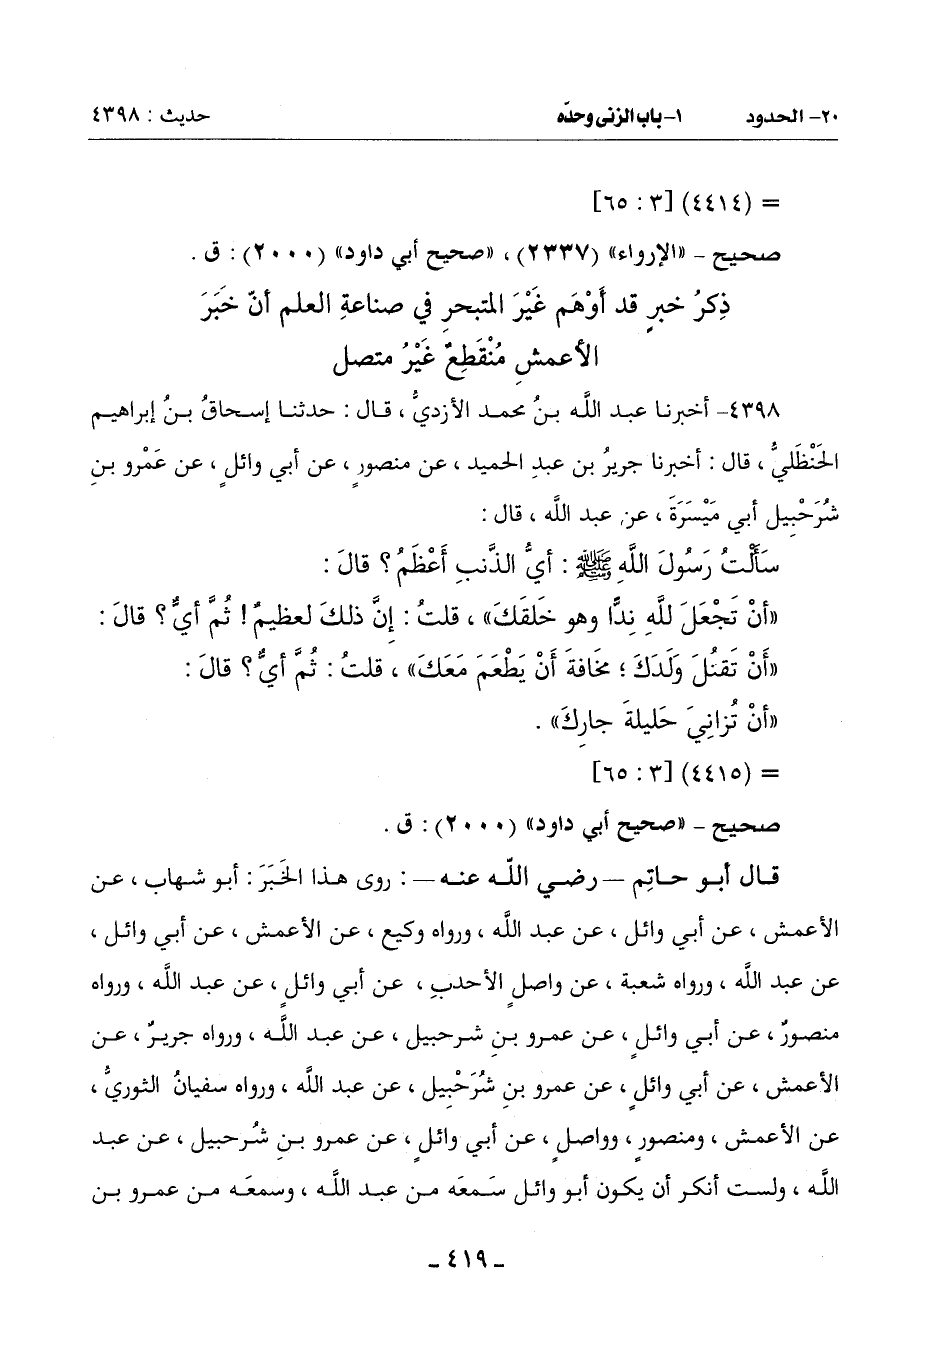 ٢٠- الحدود ١- باب الزنى وحدّه حديث : ٤٣٩٨
= (٤٤١٤) [٣ : ٦٥]
صحيح - «الإرواء» (٢٣٣٧) ، «صحيح أبي داود» (٢٠٠٠) : ق .
ذِكرُ خبرٍ قد أَوْهَم غَيْرَ المتبحرِ في صناعةِ العلم أنّ خَبَرَ
الأعمشِ مُنْقَطِعٌ غَيْرُ متصل
٤٣٩٨- أخبرنا عبد اللَّه بنُ محمد الأزديُّ ، قال : حدثنا إسحاقُ بنُ إبراهيم
الحَنْظَليُّ ، قال : أخبرنا جريرُ بن عبدِ الحميد ، عن منصورٍ ، عن أبي وائلٍ ، عن عَمْرو بنِ
شُرَحْبِيل أبي مَيْسَرَةَ ، عن عبد اللَّه ، قال :
سَأَلْتُ رَسُولَ اللَّهِ ﷺ : أيُّ الذَّنبِ أَعْظَمُ ؟ قالَ :
«أنْ تَجْعَلَ للَّهِ نِدًّا وهو خَلَقَكَ» ، قلتُ : إنَّ ذلكَ لعظيمٌ ! ثُمَّ أيٌّ ؟ قالَ :
«أَنْ تَقتُلَ وَلَدَكَ ؛ مخافةَ أَنْ يَطْعَمَ مَعَكَ» ، قلتُ : ثُمَّ أيٌّ ؟ قالَ :
«أنْ تُزانِيَ حَلِيلةَ جارِكَ» .
= (٤٤١٥) [٣ : ٦٥]
صحيح - «صحيح أبي داود» (٢٠٠٠) : ق .
قال أبو حاتِم —رضي اللّه عنه— : روى هذا الخَبَرَ : أبو شهاب ، عن
الأعمش ، عن أبي وائل ، عن عبد اللَّه ، ورواه وكيع ، عن الأعمش ، عن أبي وائل ،
عن عبد اللَّه ، ورواه شعبة ، عن واصلٍ الأحدبِ ، عن أبي وائلٍ ، عن عبد اللَّه ، ورواه
منصورٌ ، عن أبي وائلٍ ، عن عمرو بنِ شرحبيل ، عن عبد اللَّه ، ورواه جريرٌ ، عن
الأعمش ، عن أبي وائلٍ ، عن عمرو بنِ شُرَحْبِيل ، عن عبد اللَّه ، ورواه سفيانُ الثوريُّ ،
عن الأعمش ، ومنصورٍ ، وواصلٍ ، عن أبي وائلٍ ، عن عمرو بنِ شُرحبيل ، عن عبد
اللَّه ، ولست أنكر أن يكون أبو وائل سَمعَه من عبد اللَّه ، وسمعَه من عمرو بن
- ٤١٩ -